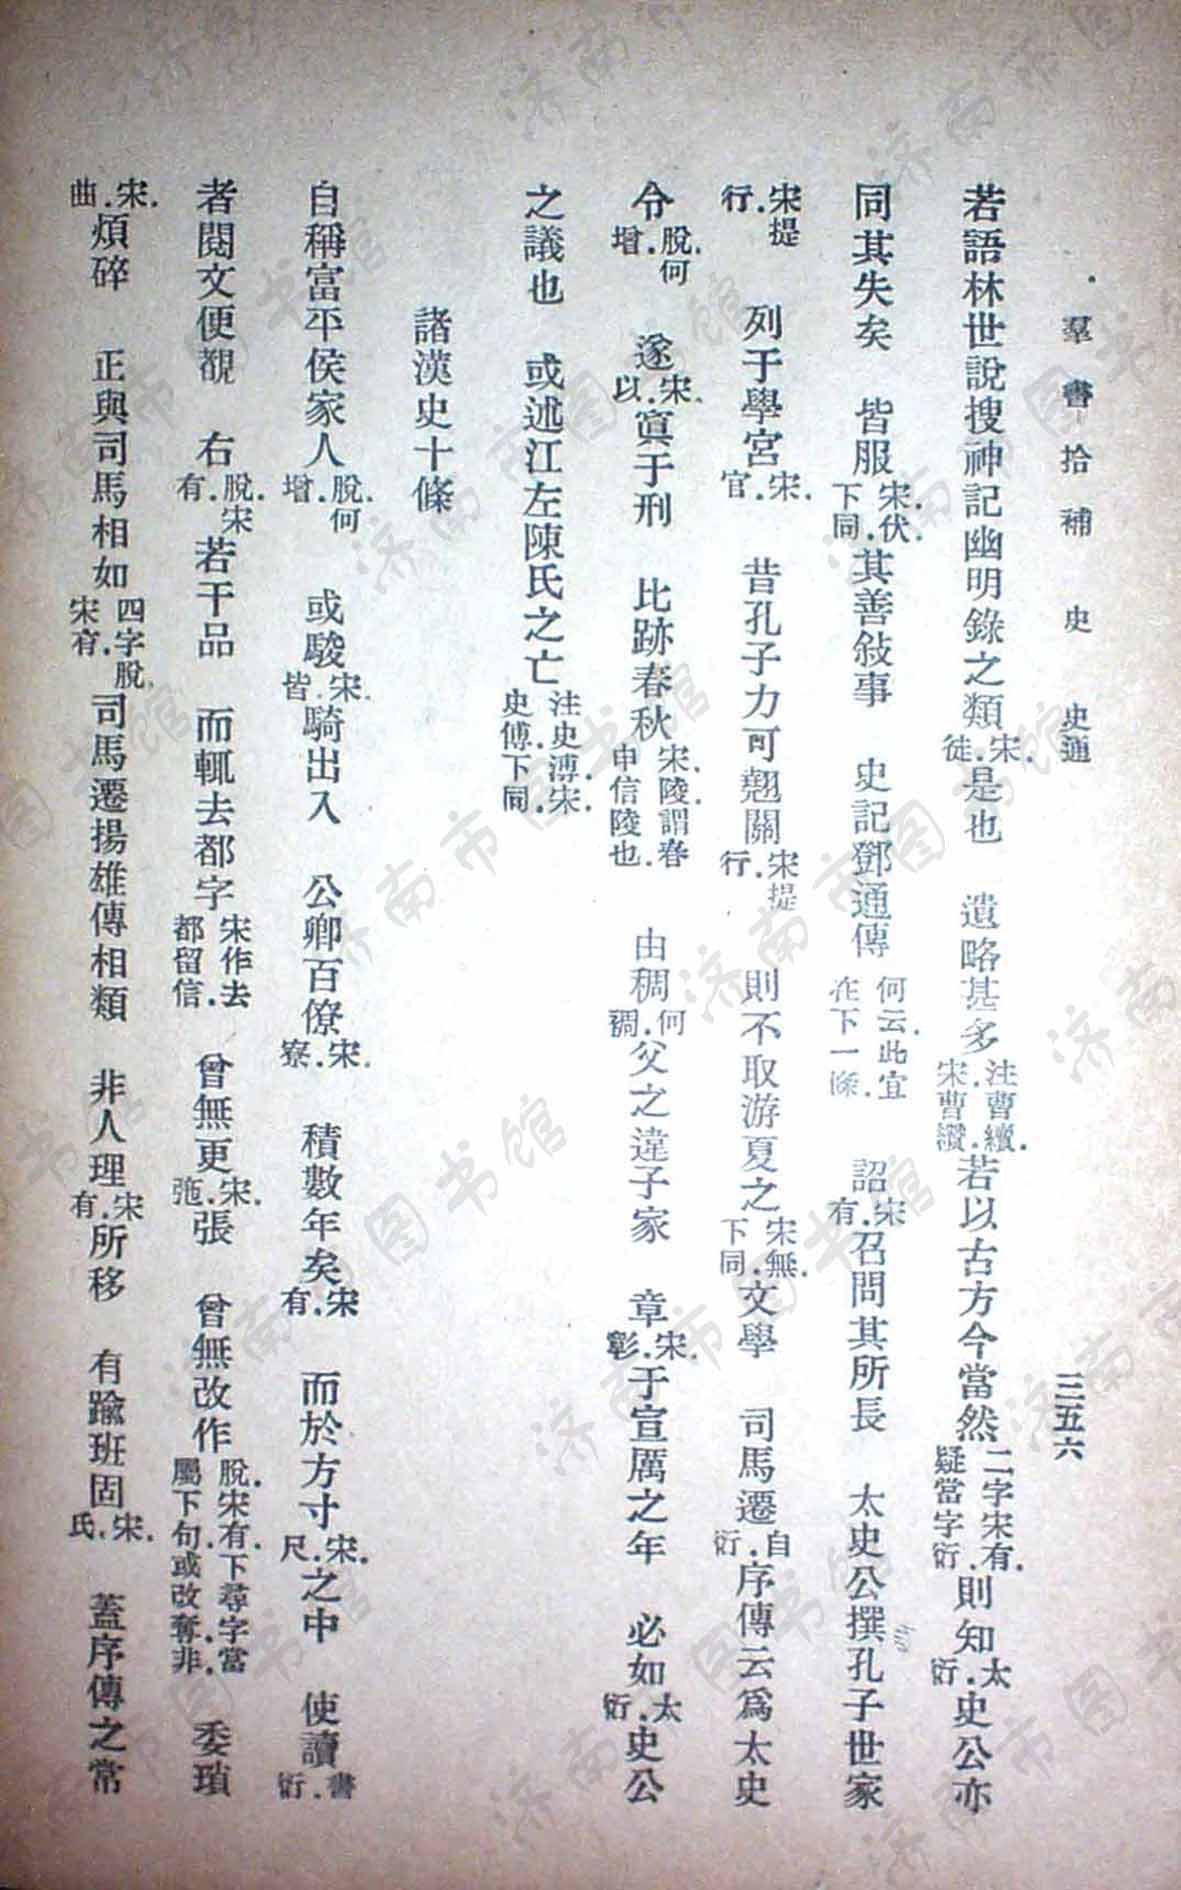 羣書拾補 史 史通 三五六
若語林世說搜神記幽明錄之類宋.徒.是也 遺略甚多注曹纘.宋曹讚.若以古方今當然二字宋有.疑當字衍.則知太.衍.史公亦
同其失矣 皆服宋.伏.下同.其善敍事 史記鄧通傳何云.此宜在下一條. 詔宋.有.召問其所長 太史公撰孔子世家
宋提行. 列于學宮宋.官. 昔孔子力可翹關宋提行. 則不取游夏之宋無.下同.文學 司馬遷自.衍.序傳云爲太史
令脫.何增. 遂宋.以.寘于刑 比跡春秋宋.陵.謂春申信陵也. 由稠何.裯.父之違子家 章宋.彰.于宣厲之年 必如太.衍.史公
之議也 或述江左陳氏之亡注史溥.宋.史傅.下同.
諸漢史十條
自稱富平侯家人脫.何增. 或駿宋.皆.騎出入 公卿百僚宋.寮. 積數年矣宋.有. 而於方寸宋.尺.之中 使讀書.衍.
者閱文便覩 右脫.宋有.若干品 而輒去都字宋作去都留信. 曾無更宋.弛.張 曾無改作脫.宋有.下尋字當屬下句.或改奪.非. 委瑣
宋.曲.煩碎 正與司馬相如四字脫.宋有.司馬遷揚雄傳相類 非人理宋.有.所移 有踰班固宋.氏. 蓋序傳之常